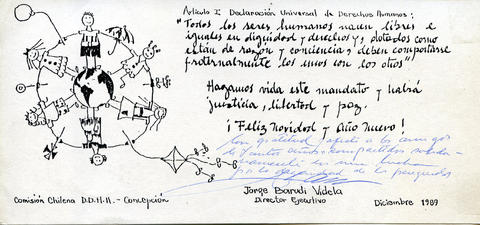 Artículo I: Declaración Universal de Derechos Humanos:
"Todos los seres humanos nacen libres e
iguales en dignidad y derechos y, dotados como
están de razón y conciencia, deben comportarse
fraternalmente los unos con los otros"
Hagamos vida este mandato y habrá
justicia, libertad y paz.
¡Feliz Navidad y Año Nuevo!
Con gratitud y
años compartidos
en una lucha
por la dignidad de
Jorge Barudi Videla
Director Ejecutivo
Comisión Chilena D.D.H.H. - Concepción
Diciembre 1989